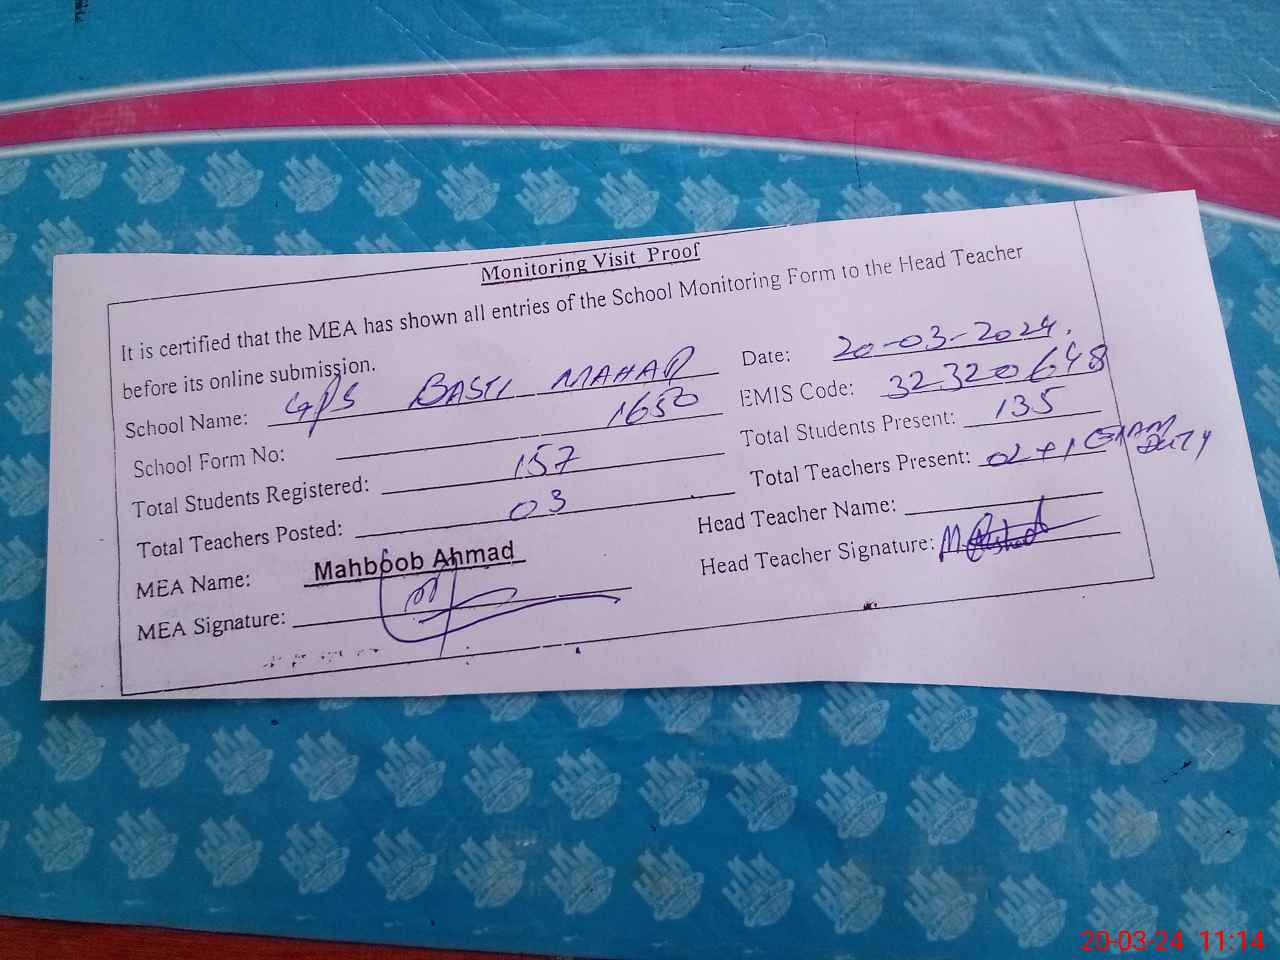 Monitoring Visit Proof
It is certified that the MEA has shown all entries of the School Monitoring Form to the Head Teacher
before its online submission.
Date: 20-03-2024.
School Name: GPS BASTI MAHAR
EMIS Code: 32320648
School Form No: 1650
Total Students Present: 135
Total Students Registered: 157
Total Teachers Present: 02+1 EXAM DUTY
Total Teachers Posted: 03
Head Teacher Name:
MEA Name: Mahboob Ahmad
Head Teacher Signature:
MEA Signature:
20-03-24 11:14